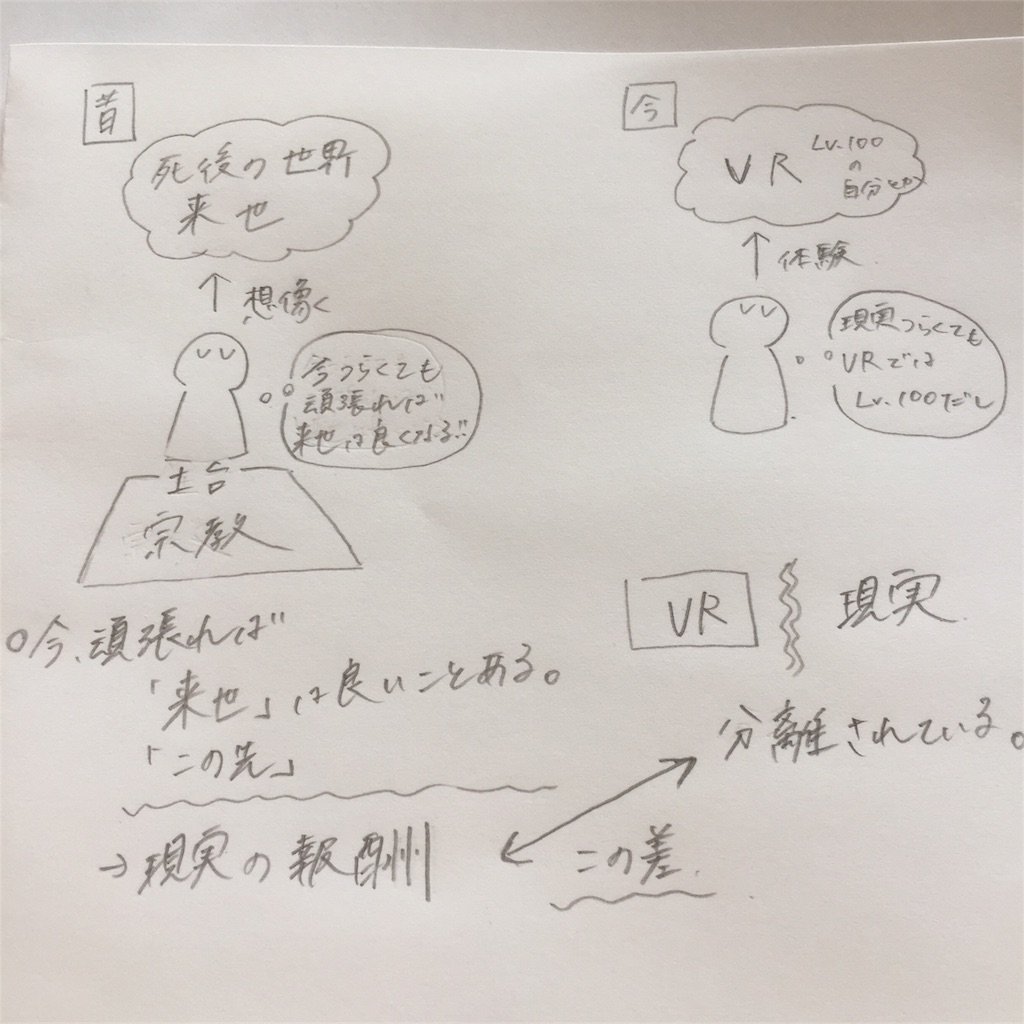 昔
死後の世界
来世
↑ 想像
今つらくても
頑張れば
来世は良くなる!!
土台
宗教
○今、頑張れば
「来世」は良いことある。
「この先」
→現実の報酬
今
VR
Lv.100
の
自分とか
↑ 体験
現実つらくても
VRでは
Lv.100だし
VR
現実
分離されている。
この差